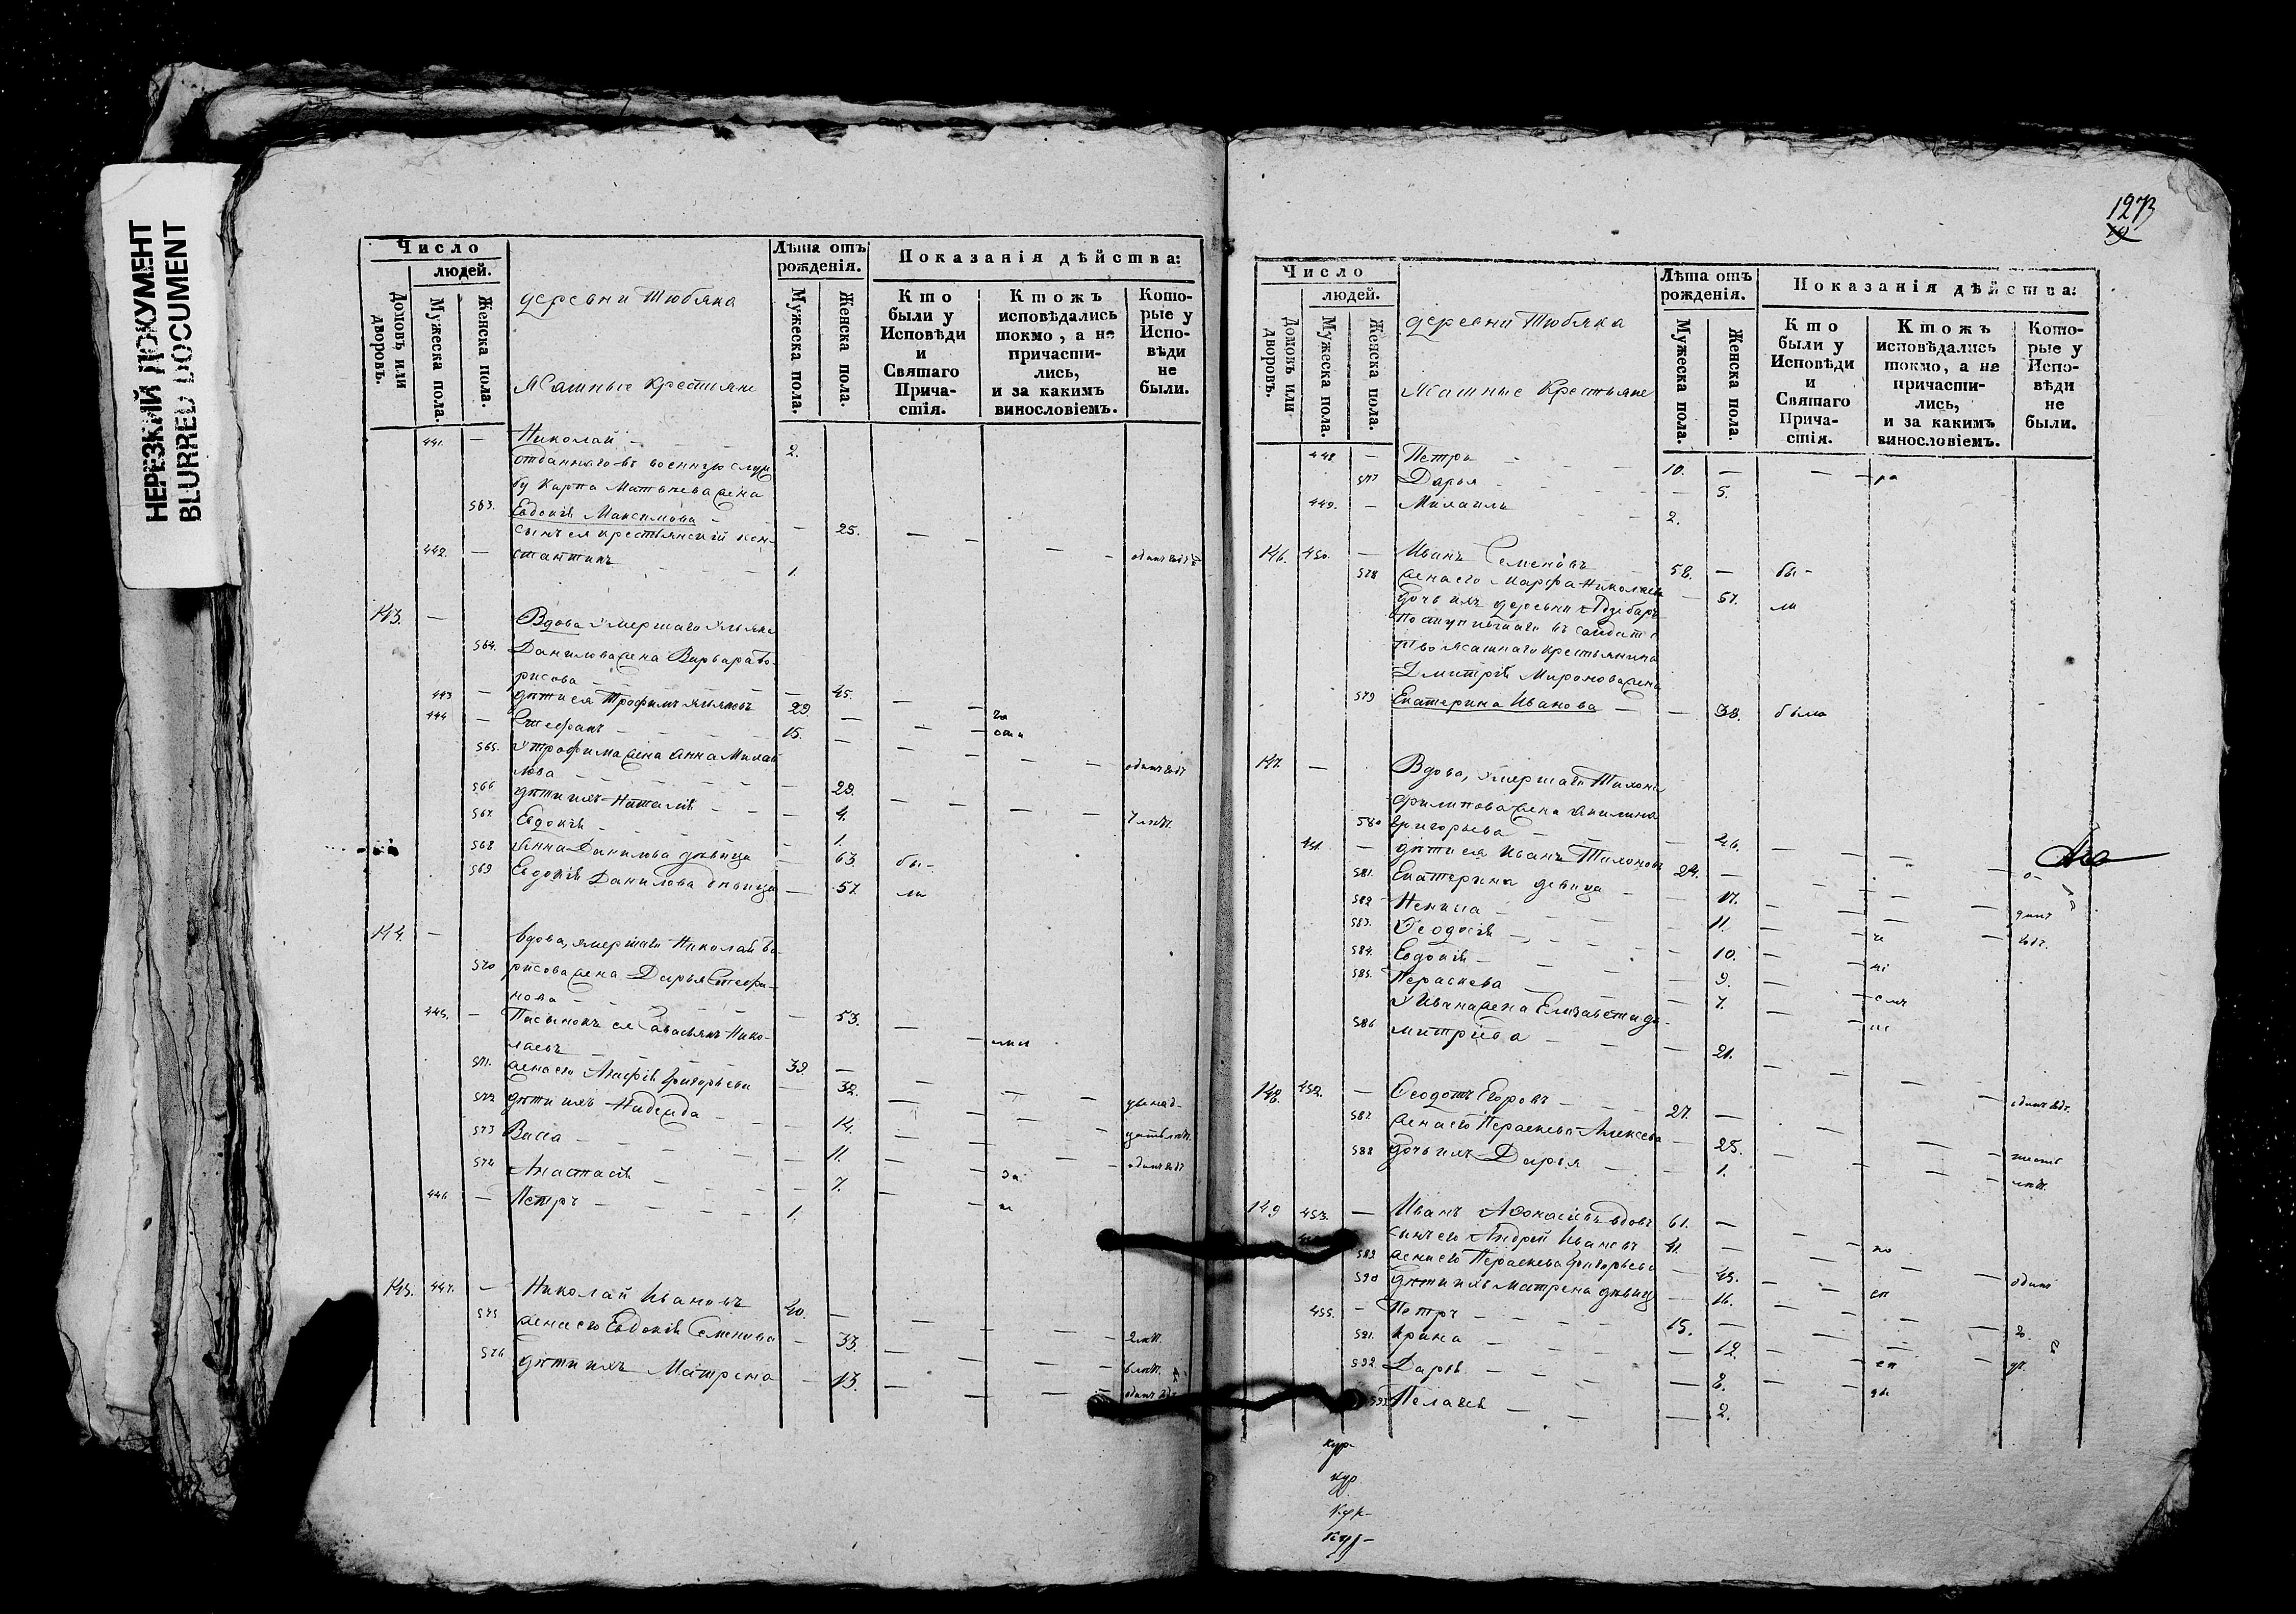 НЕРЕЗКИЙ ДОКУМЕНТ
BLURRED DOCUMENT
Число
людей.
Домовъ или дворовъ.
Мужеска пола.
Женска пола.
деревни Тюбяка
Ясашные крестьяне
Лѣта отъ рожденія.
Мужеска пола.
Женска пола.
Показанія дѣйства:
Кто были у Исповѣди и Святаго Причастія.
Ктожъ исповѣдались токмо, а не причастились, и за какимъ винословіемъ.
Которые у Исповѣди не были.
441. — Николай 2.
отданнаго въ военную служ
бу Карпа Матвѣева жена
563. Евдокія Максимова — 25.
сынъ ея крестьянскій Кон
442. — стантинъ 1.
143. — Вдова умершаго Ульяна
564. Данилова жена Варвара Бо
рисова — 45.
443 — дѣти ея Трофимъ Ульяновъ 29. —
444 — Стефанъ 15. —
565. У Трофима жена Анна Михай
лова — 29.
566 дѣти ихъ Наталія — 4.
567. Евдокія — 1.
568 Анна Данилова дѣвица — 63 бы-
569 Евдокія Данилова дѣвица — 57. ли
144. — Вдова, умершаго Николая Бо
570 рисова жена Дарья Стефа
нова — 53.
445. — Пасынокъ ея Савастьянъ Нико
лаевъ 39. —
571. жена его Агафія Григорьева — 32.
572 дѣти ихъ Надежда — 14.
573 Васса — 11.
574 Анастасія — 7.
446 — Петръ 1.
145. 447. — Николай Ивановъ 40. —
575 жена его Евдокія Семенова — 33.
576 дѣти ихъ Матрена — 13.
1273
Число
людей.
Домовъ или дворовъ.
Мужеска пола.
Женска пола.
деревни Тюбяка
Ясашные крестьяне
Лѣта отъ рожденія.
Мужеска пола.
Женска пола.
Показанія дѣйства:
Кто были у Исповѣди и Святаго Причастія.
Ктожъ исповѣдались токмо, а не причастились, и за какимъ винословіемъ.
Которые у Исповѣди не были.
448 — Петръ 10. —
577 Дарья — 5.
449. — Михаилъ 2.
146. 450. — Иванъ Семеновъ 58. — бы-
578 жена его Марфа Николаева — 57. ли
дочь ихъ деревни
поступившаго въ солдатс
тво ясашнаго крестьянина
Дмитрія Миронова жена
579 Екатерина Иванова — 38. была
147. — Вдова, умершаго Тихона
Филипова жена Акилина
580 Григорьева — 46.
451. — дѣти ея Иванъ Тихоновъ 24. —
581. Екатерина девица — 17.
582 Ненила — 11.
583. Ѳеодосія — 10.
584. Евдокія — 9.
585. Пераскева — 7.
У Ивана жена Елизавета Д
586 митріева — 21.
148. 452. — Ѳеодотъ Егоровъ 27. —
587. жена его Пераскева Алексеева — 25.
588 дочь ихъ Дарья — 1.
149 453. — Иванъ Аѳонасьевъ вдовъ 61. —
сынъ его Андрей Ивановъ 41. —
589 жена его Пераскева Григорьева — 43.
590 дѣти ихъ Матрена дѣвиц — 16.
455. — Петръ 15. —
591. Ирина — 12.
592. Дарія — 8.
Пелагея — 2.